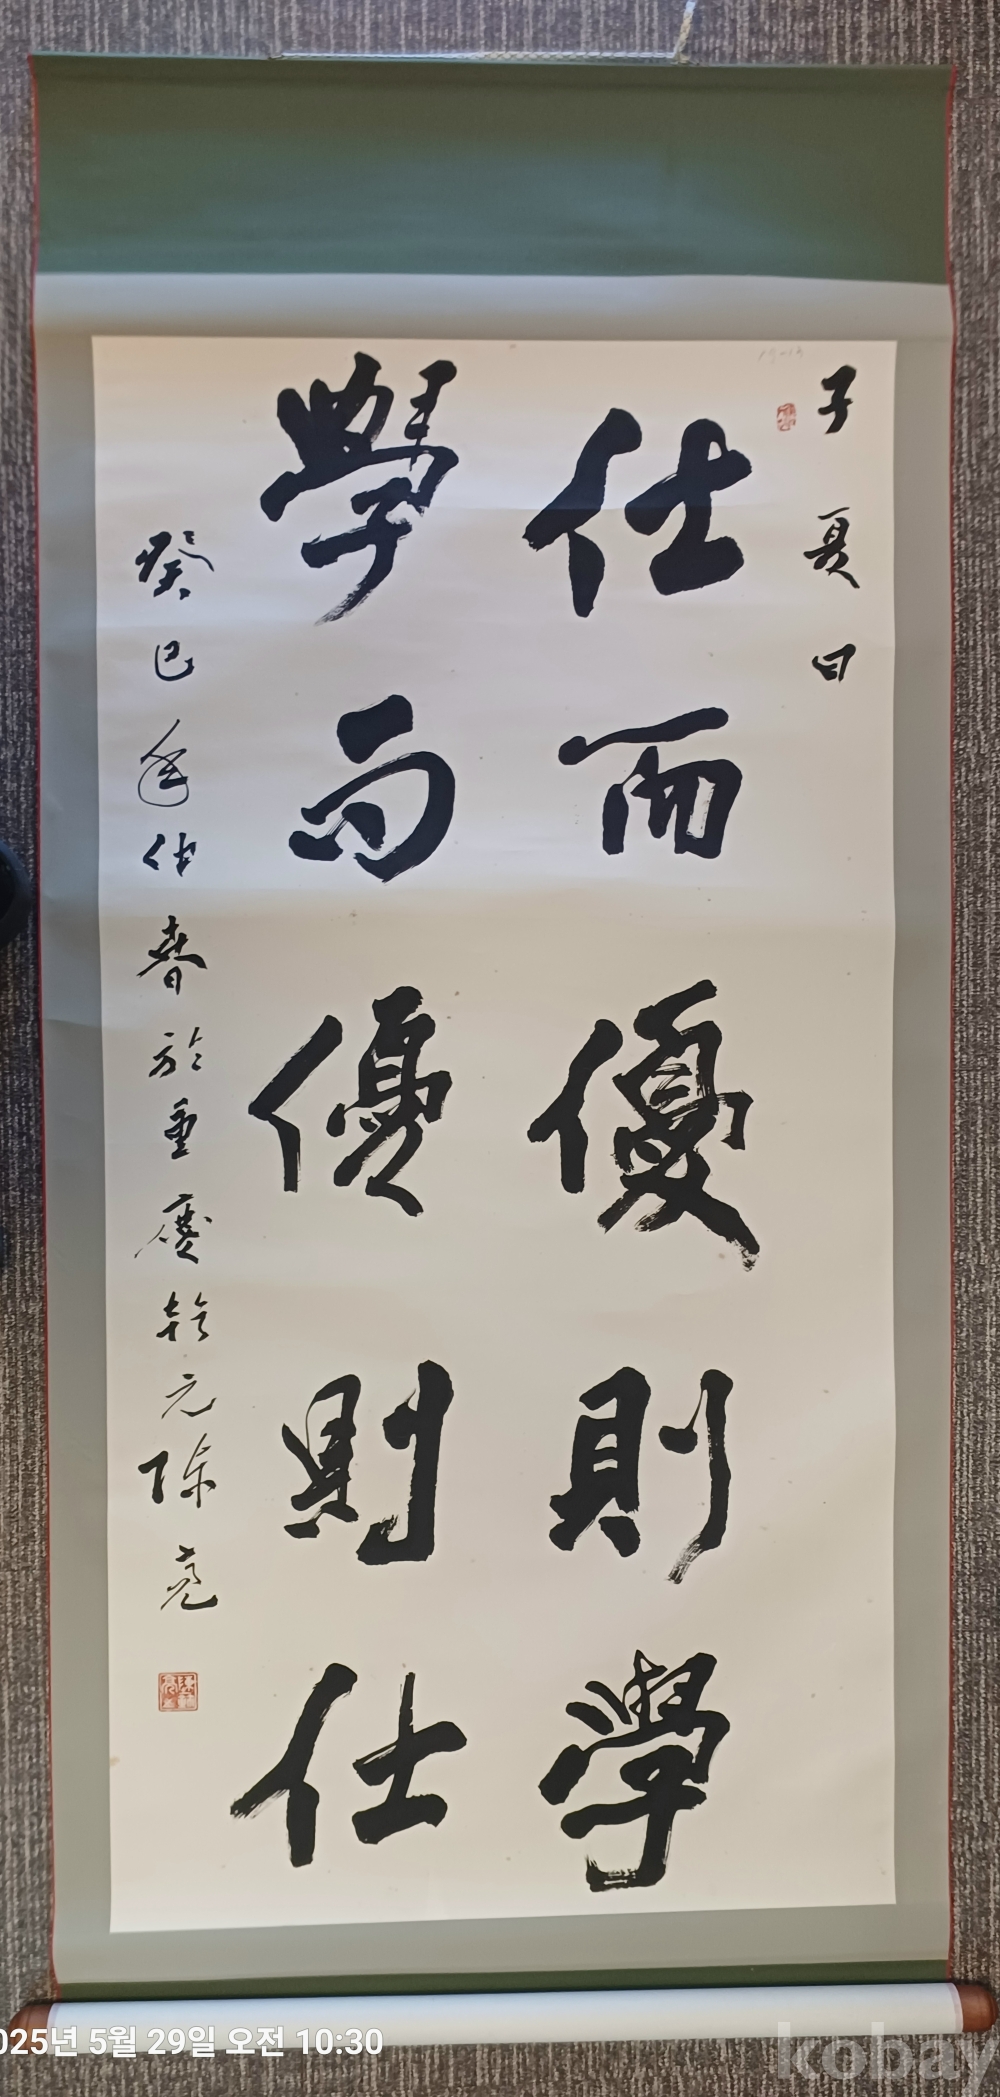 子夏曰
仕而優則學
學而優則仕
癸巳年仲春於重慶乾元陳亮
025년 5월 29일 오전 10:30
kobay